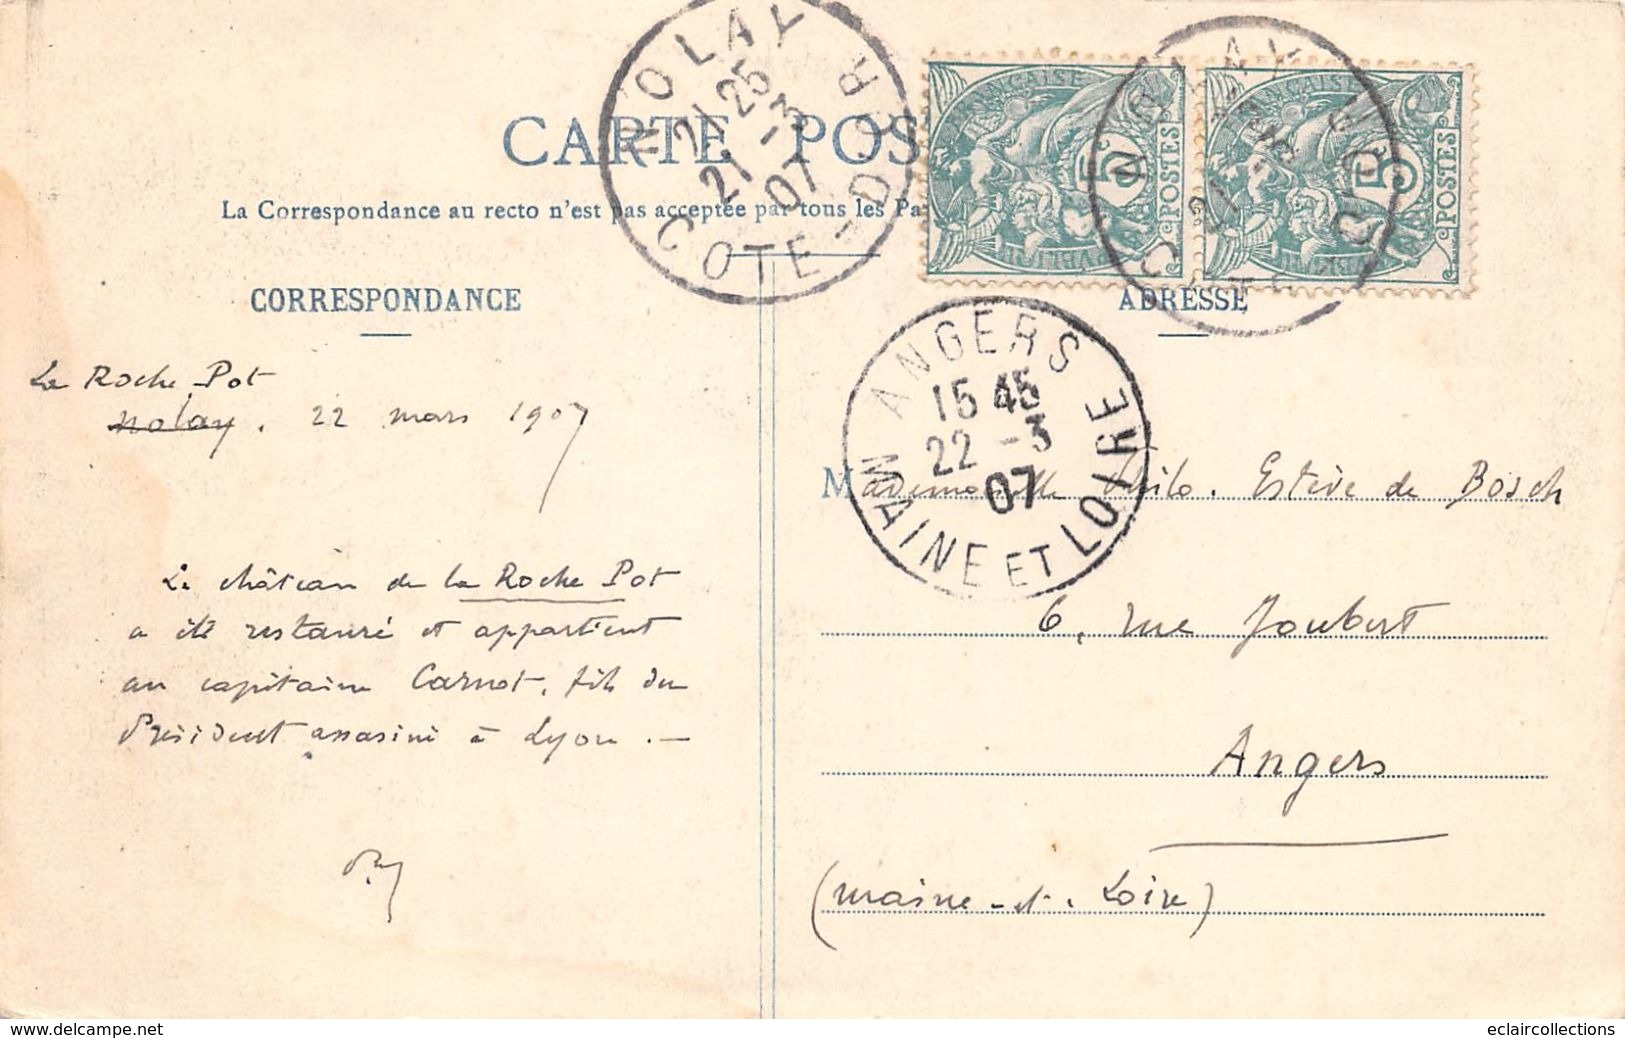 CARTE POS
La Correspondance au recto n'est pas acceptée par tous les Pa
NOLAY
21 25
21 -3
07
COTE-D'OR
NOLAY
FRANÇAISE
5c
POSTES
FRANÇAISE
5c
POSTES
CORRESPONDANCE
ADRESSE
ANGERS
15 45
22 -3
07
MAINE ET LOIRE
La Roche Pot
Nolay. 22 mars 1907
Le château de la Roche Pot
a été restauré et appartient
au capitaine Carnot, fils du
Président assasiné à Lyon. —
Mademoiselle Estève de Bosch
6, rue Joubert
Angers
(Maine-et-Loire)
www.delcampe.net
eclaircollections